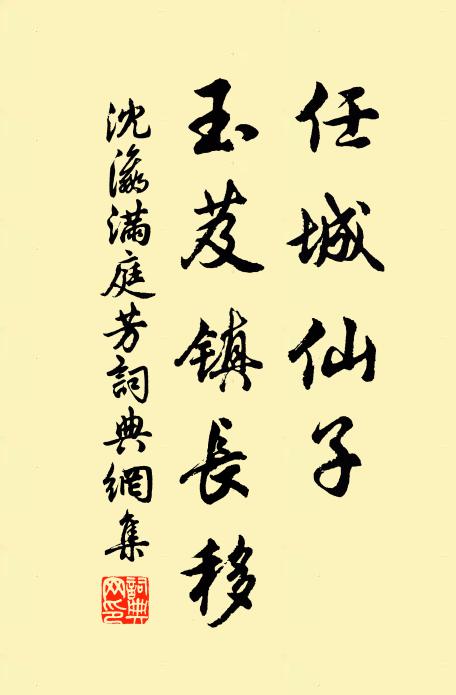 任城仙子
玉芨鎮長移
沈瀛滿庭芳詞典網集
詞典網印